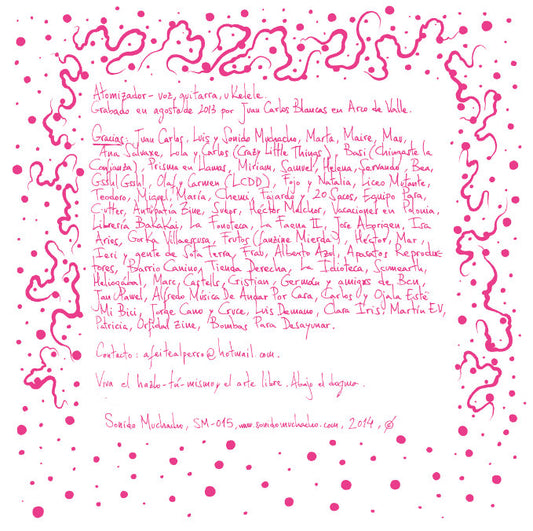 Atomizador - voz, guitarra, ukelele.
Grabado en agosto de 2013 por Juan Carlos Blancas en Arco de Valle.
Gracias: Juan Carlos, Luis y Sonido Muchacho, Marta, Maire, Mar,
Ana Salvaxe, Lola y Carlos (Crazy Little Things), Basi (Chingaste la
Confianza), Prisma en Llamas, Miriam, Samuel, Helena, Servando, Bea,
Gssh! Gssh!, Olaf y Carmen (LCDD), Pojo y Natalia, Liceo Mutante,
Teodoro, Miguel, María, Chemi, Fajardo, 20 Sacos, Equipo Para,
Cutter, Antipatía Zine, Sweer, Héctor Melchor, Vacaciones en Polonia,
Librería Bakakai, La Fonoteca, La Faena II, Jose Aborigen, Isa
Aries, Gorka Villaescusa, Frutos (Fanzine Mierda), Héctor, Mar,
Ieri y gente de Sofa Terra, Frab, Alberto Azol, Aparatos Reproduc-
tores, Barrio Canino, Tienda Derecha, La Idioteca, Scumearth,
Heliogàbal, Marc, Castells, Cristian, Germán y amigos de Bcn,
Jan Pawel, Alfredo Música De Andar Por Casa, Carlos y Ojalá Esté
Mi Bici, Jorge Cano y Cruce, Luis Demano, Clara Iris, Martín EV,
Patricia, Orfidal zine, Bombas Para Desayunar.
Contacto: afeitealperro@hotmail.com.
Viva el hazlo-tú-mismo y el arte libre. Abajo el dogma.
Sonido Muchacho, SM-015, www.sonidomuchacho.com, 2014,